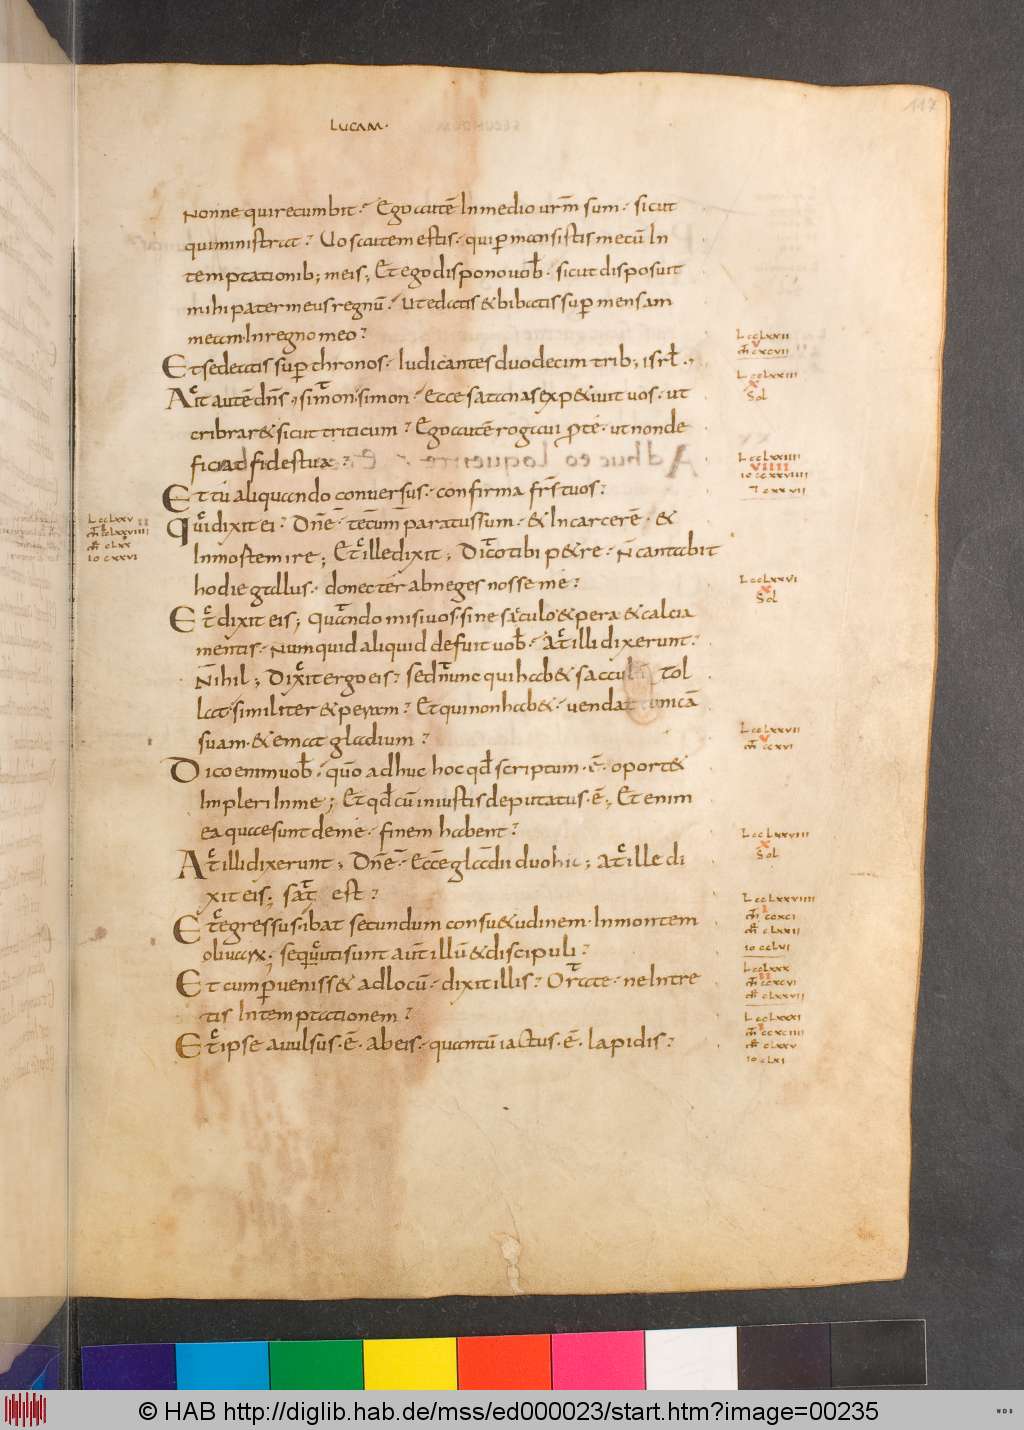 117
LUCAM·
Nonne qui recumbit· Ego autē In medio urm̄ sum· sicut
qui ministrat· Uos autem estis· qui p̄mansistis mecū In
temptationib; meis; Et ego dispono uob̄· sicut disposuit
mihi pater meus regnū· Ut edatis & bibatis sup̄ mensam
meam· In regno meo·
Et sedeatis sup̄ thronos· Iudicantes duodecim trib; isrl̄·,
Ait autē dn̄s, simon· simon· Ecce satanas exp&iuit uos· ut
cribrar& sicut triticum· Ego autē rogaui pro te· ut non de
ficiat fides tua·
Et tu aliquando conuersus· confirma fr̄s tuos·
Qui dixit ei· Dn̄e· tecum paratus sum· & In carcerē· &
In mortem ire; Et ille dixit; Dico tibi p&re· N̄ cantabit
hodie gallus· donec ter abneges nosse me·
Et dixit eis; Quando misi uos· sine sacculo & pera & calcia
mentis· Numquid aliquid defuit uob̄· At illi dixerunt·
Nihil; Dixit ergo eis· sed nunc qui hab& sacculū Tol
lat· similiter & peram· Et qui non hab&· uendat tunicā
suam· & emat gladium·
Dico enim uob̄· quō adhuc hoc qd̄ scriptum· ē· oport&
Impleri In me; Et qd̄ cū iniustis deputatus· ē·, Et enim
ea quae sunt de me· finem habent·
At illi dixerunt; Dn̄e· Ecce gladii duo hic; At ille di
xit eis; sat est·
Et egressus· ibat secundum consu&udinem· In montem
oliuarx; secuti sunt aut̄ illū & discipuli·
Et cum p̄ueniss& ad locū· dixit illis· Orate· ne Intre
tis In temptationem·
Et ipse auulsus· ē· ab eis· quantū iactus· ē· lapidis·
L ccLxxii
V
m̄ cxcvii
L ccLxxiii
X
Sol
L ccLxxiiii
VIIII
io ccxxviiii
L ccLxxv
io cxxvi
L ccLxxvi
X
Sol
L ccLxxvii
V
m̄ ccxvi
L ccLxxviii
X
Sol
L ccLxxviiii
I
m̄ ccxci
mr̄ cLxxii
io ccLvi
L ccLxxx
m̄ ccxcvi
mr̄ cLxxvii
L ccLxxxi
m̄ ccxciiii
mr̄ cLxxv
io cLxi
© HAB http://diglib.hab.de/mss/ed000023/start.htm?image=00235